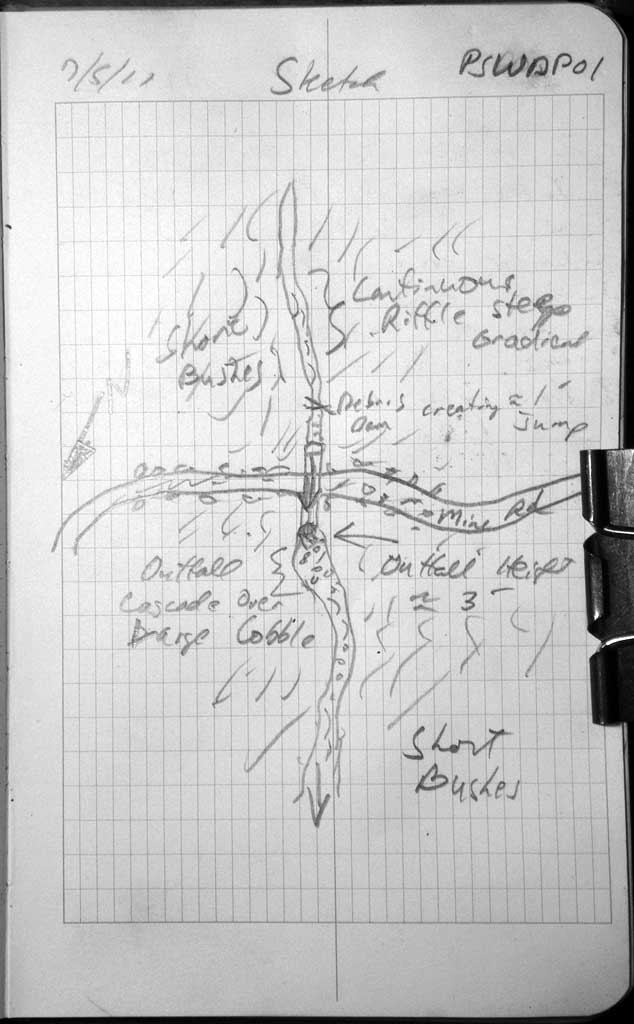 7/5/11
Sketch
PSWAP01
Continuous
Riffle steep
Gradient
Short
Bushes
Debris creating ≈ 1'
Dam Jump
Mine Rd
Outfall
Cascade over
Large Cobble
Outfall Height
≈ 3'
Short
Bushes